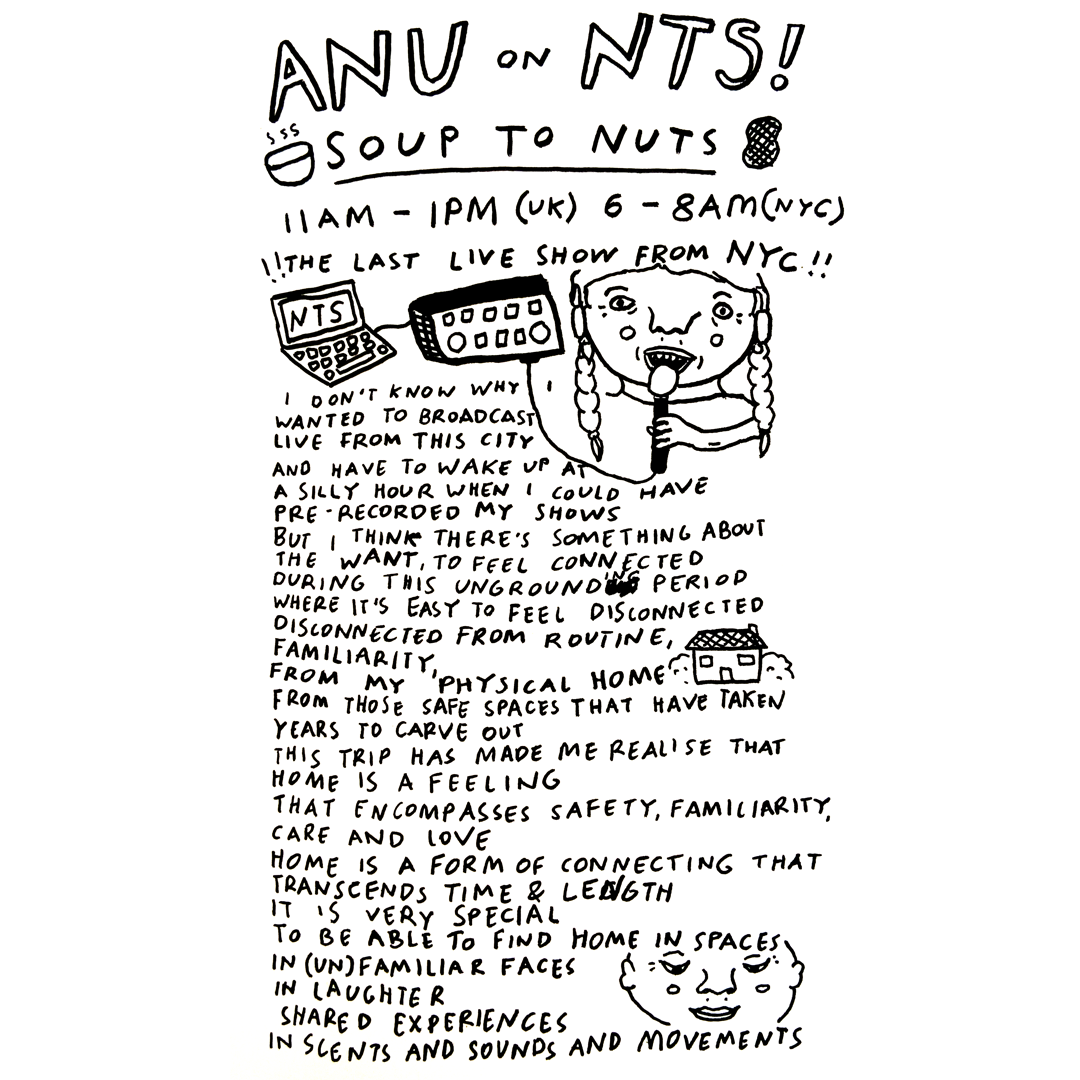 ANU ON NTS!
SOUP TO NUTS
11AM - 1PM (UK) 6 - 8AM (NYC)
!!THE LAST LIVE SHOW FROM NYC!!
NTS
I DON'T KNOW WHY I
WANTED TO BROADCAST
LIVE FROM THIS CITY
AND HAVE TO WAKE UP AT
A SILLY HOUR WHEN I COULD HAVE
PRE-RECORDED MY SHOWS
BUT I THINK THERE'S SOMETHING ABOUT
THE WANT, TO FEEL CONNECTED
DURING THIS UNGROUNDING PERIOD
WHERE IT'S EASY TO FEEL DISCONNECTED
DISCONNECTED FROM ROUTINE,
FAMILIARITY,
FROM MY PHYSICAL HOME
FROM THOSE SAFE SPACES THAT HAVE TAKEN
YEARS TO CARVE OUT
THIS TRIP HAS MADE ME REALISE THAT
HOME IS A FEELING
THAT ENCOMPASSES SAFETY, FAMILIARITY,
CARE AND LOVE
HOME IS A FORM OF CONNECTING THAT
TRANSCENDS TIME & LENGTH
IT IS VERY SPECIAL
TO BE ABLE TO FIND HOME IN SPACES,
IN (UN)FAMILIAR FACES
IN LAUGHTER
SHARED EXPERIENCES
IN SCENTS AND SOUNDS AND MOVEMENTS